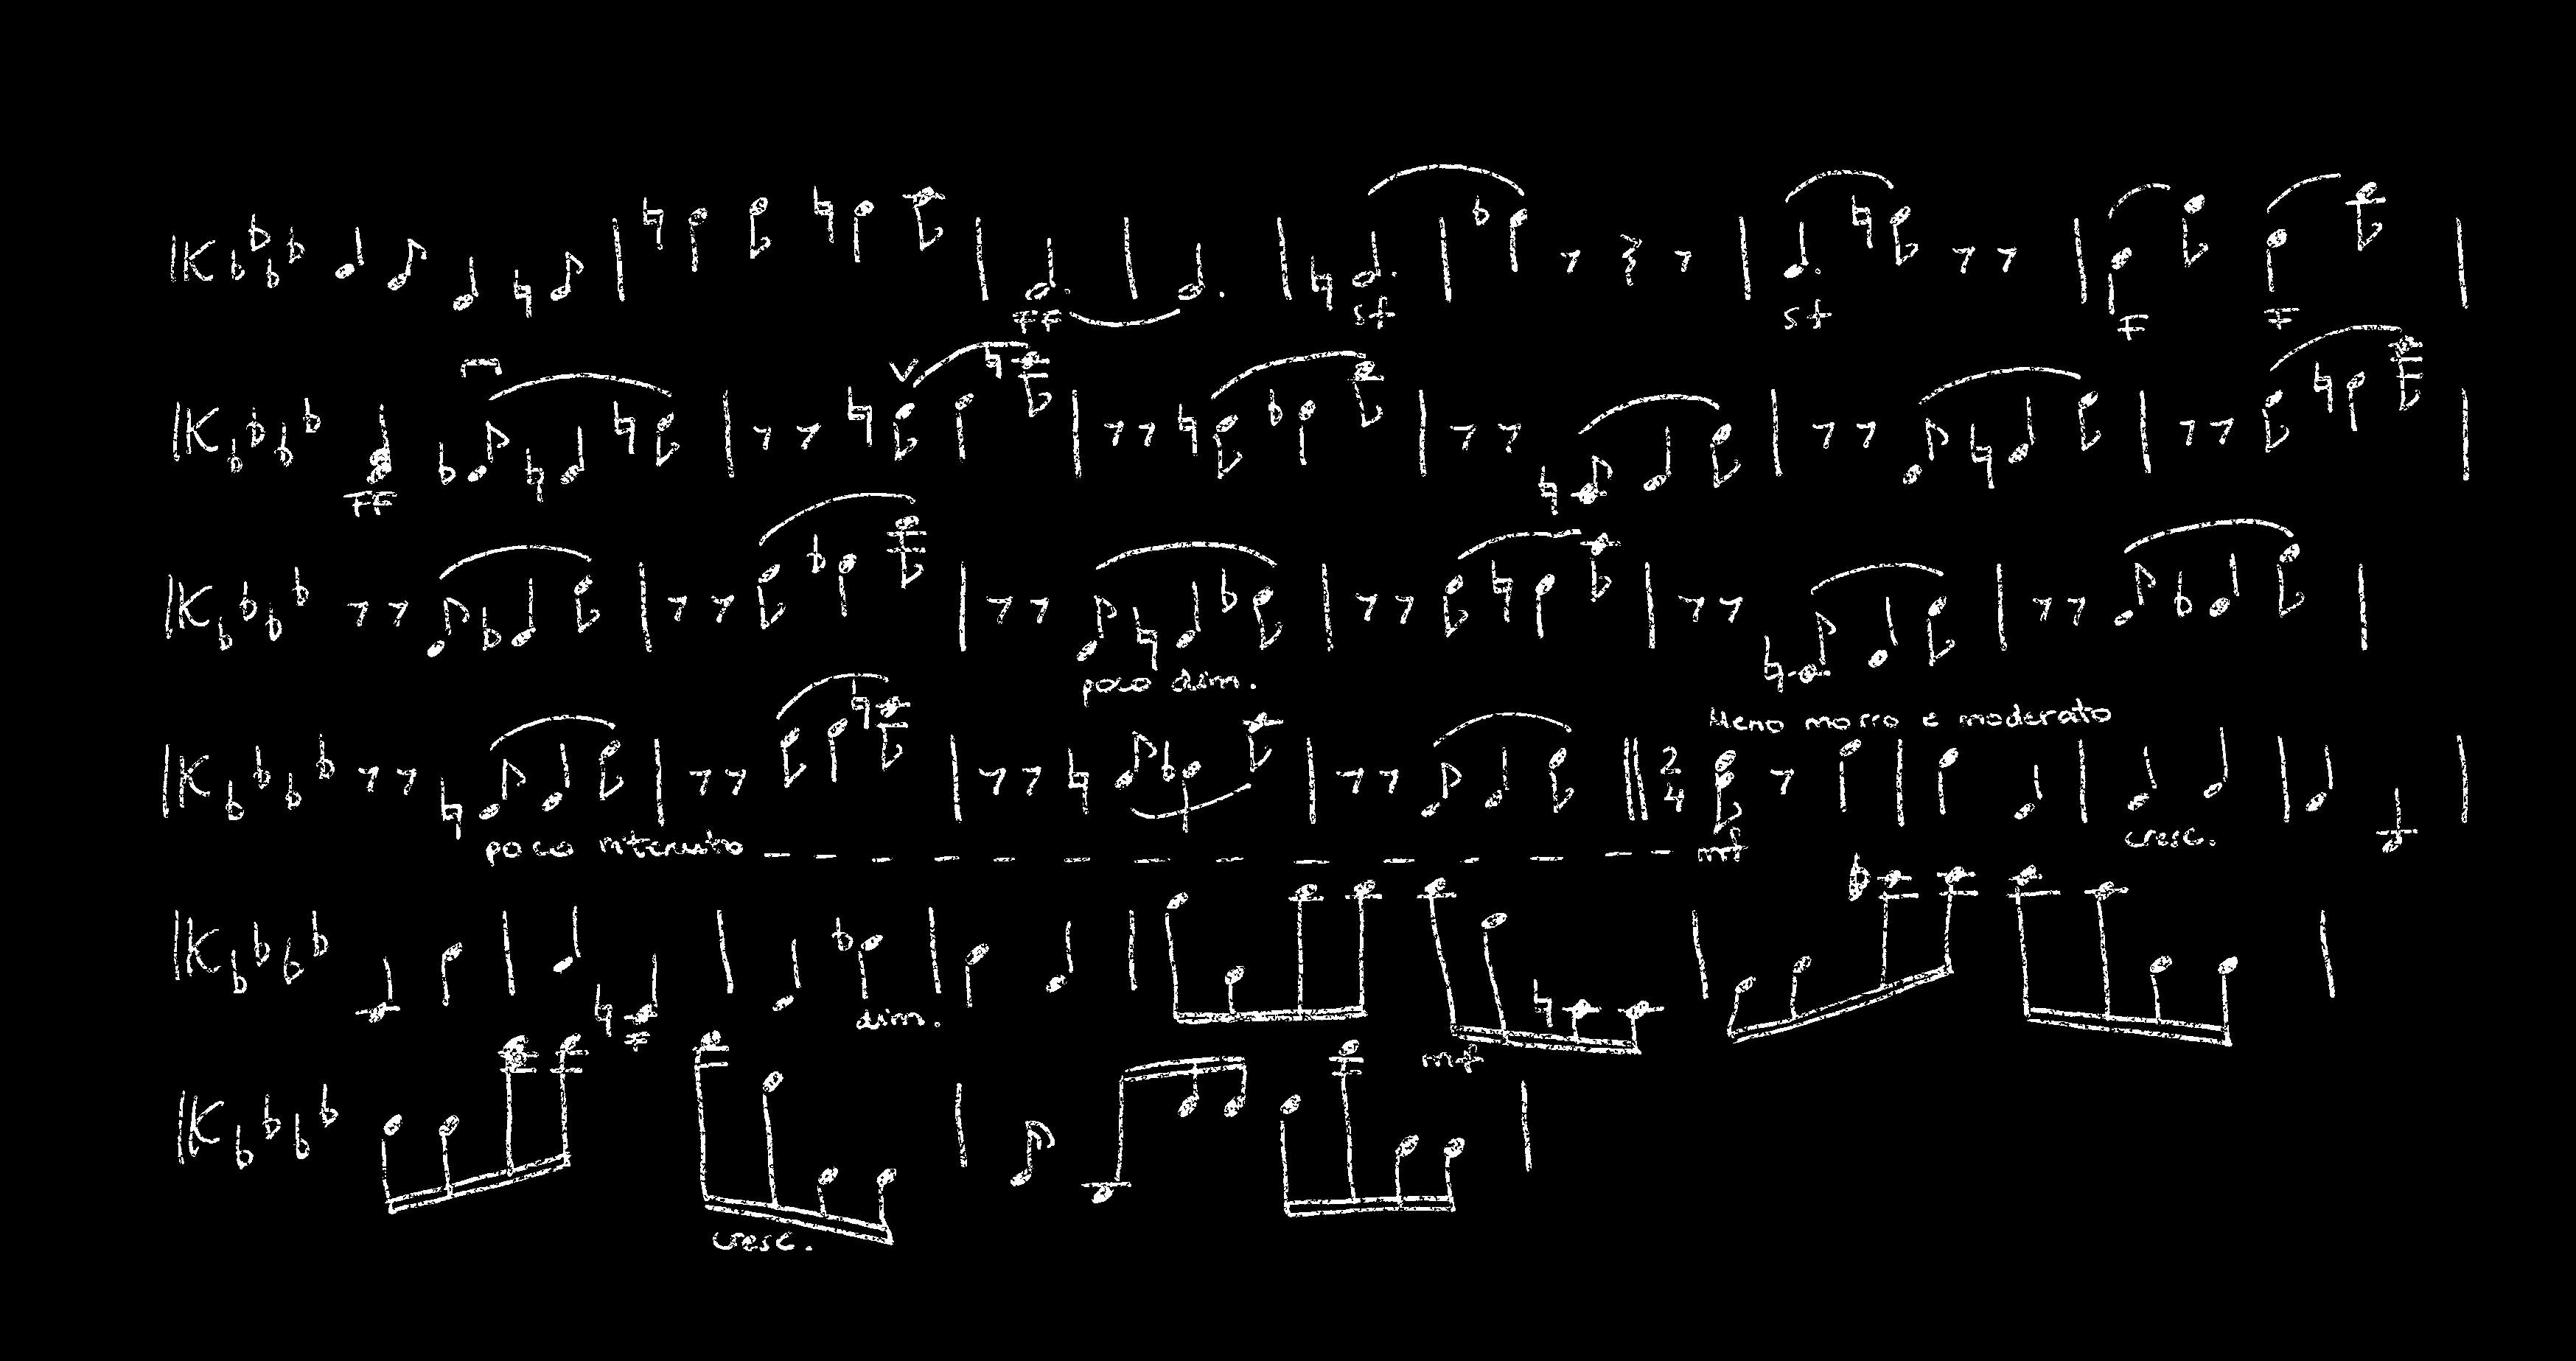 FF sf sf F F
FF
poco dim.
Meno mosso e moderato
2 4
poco ritenuto mf cresc.
dim. F mf
cresc.